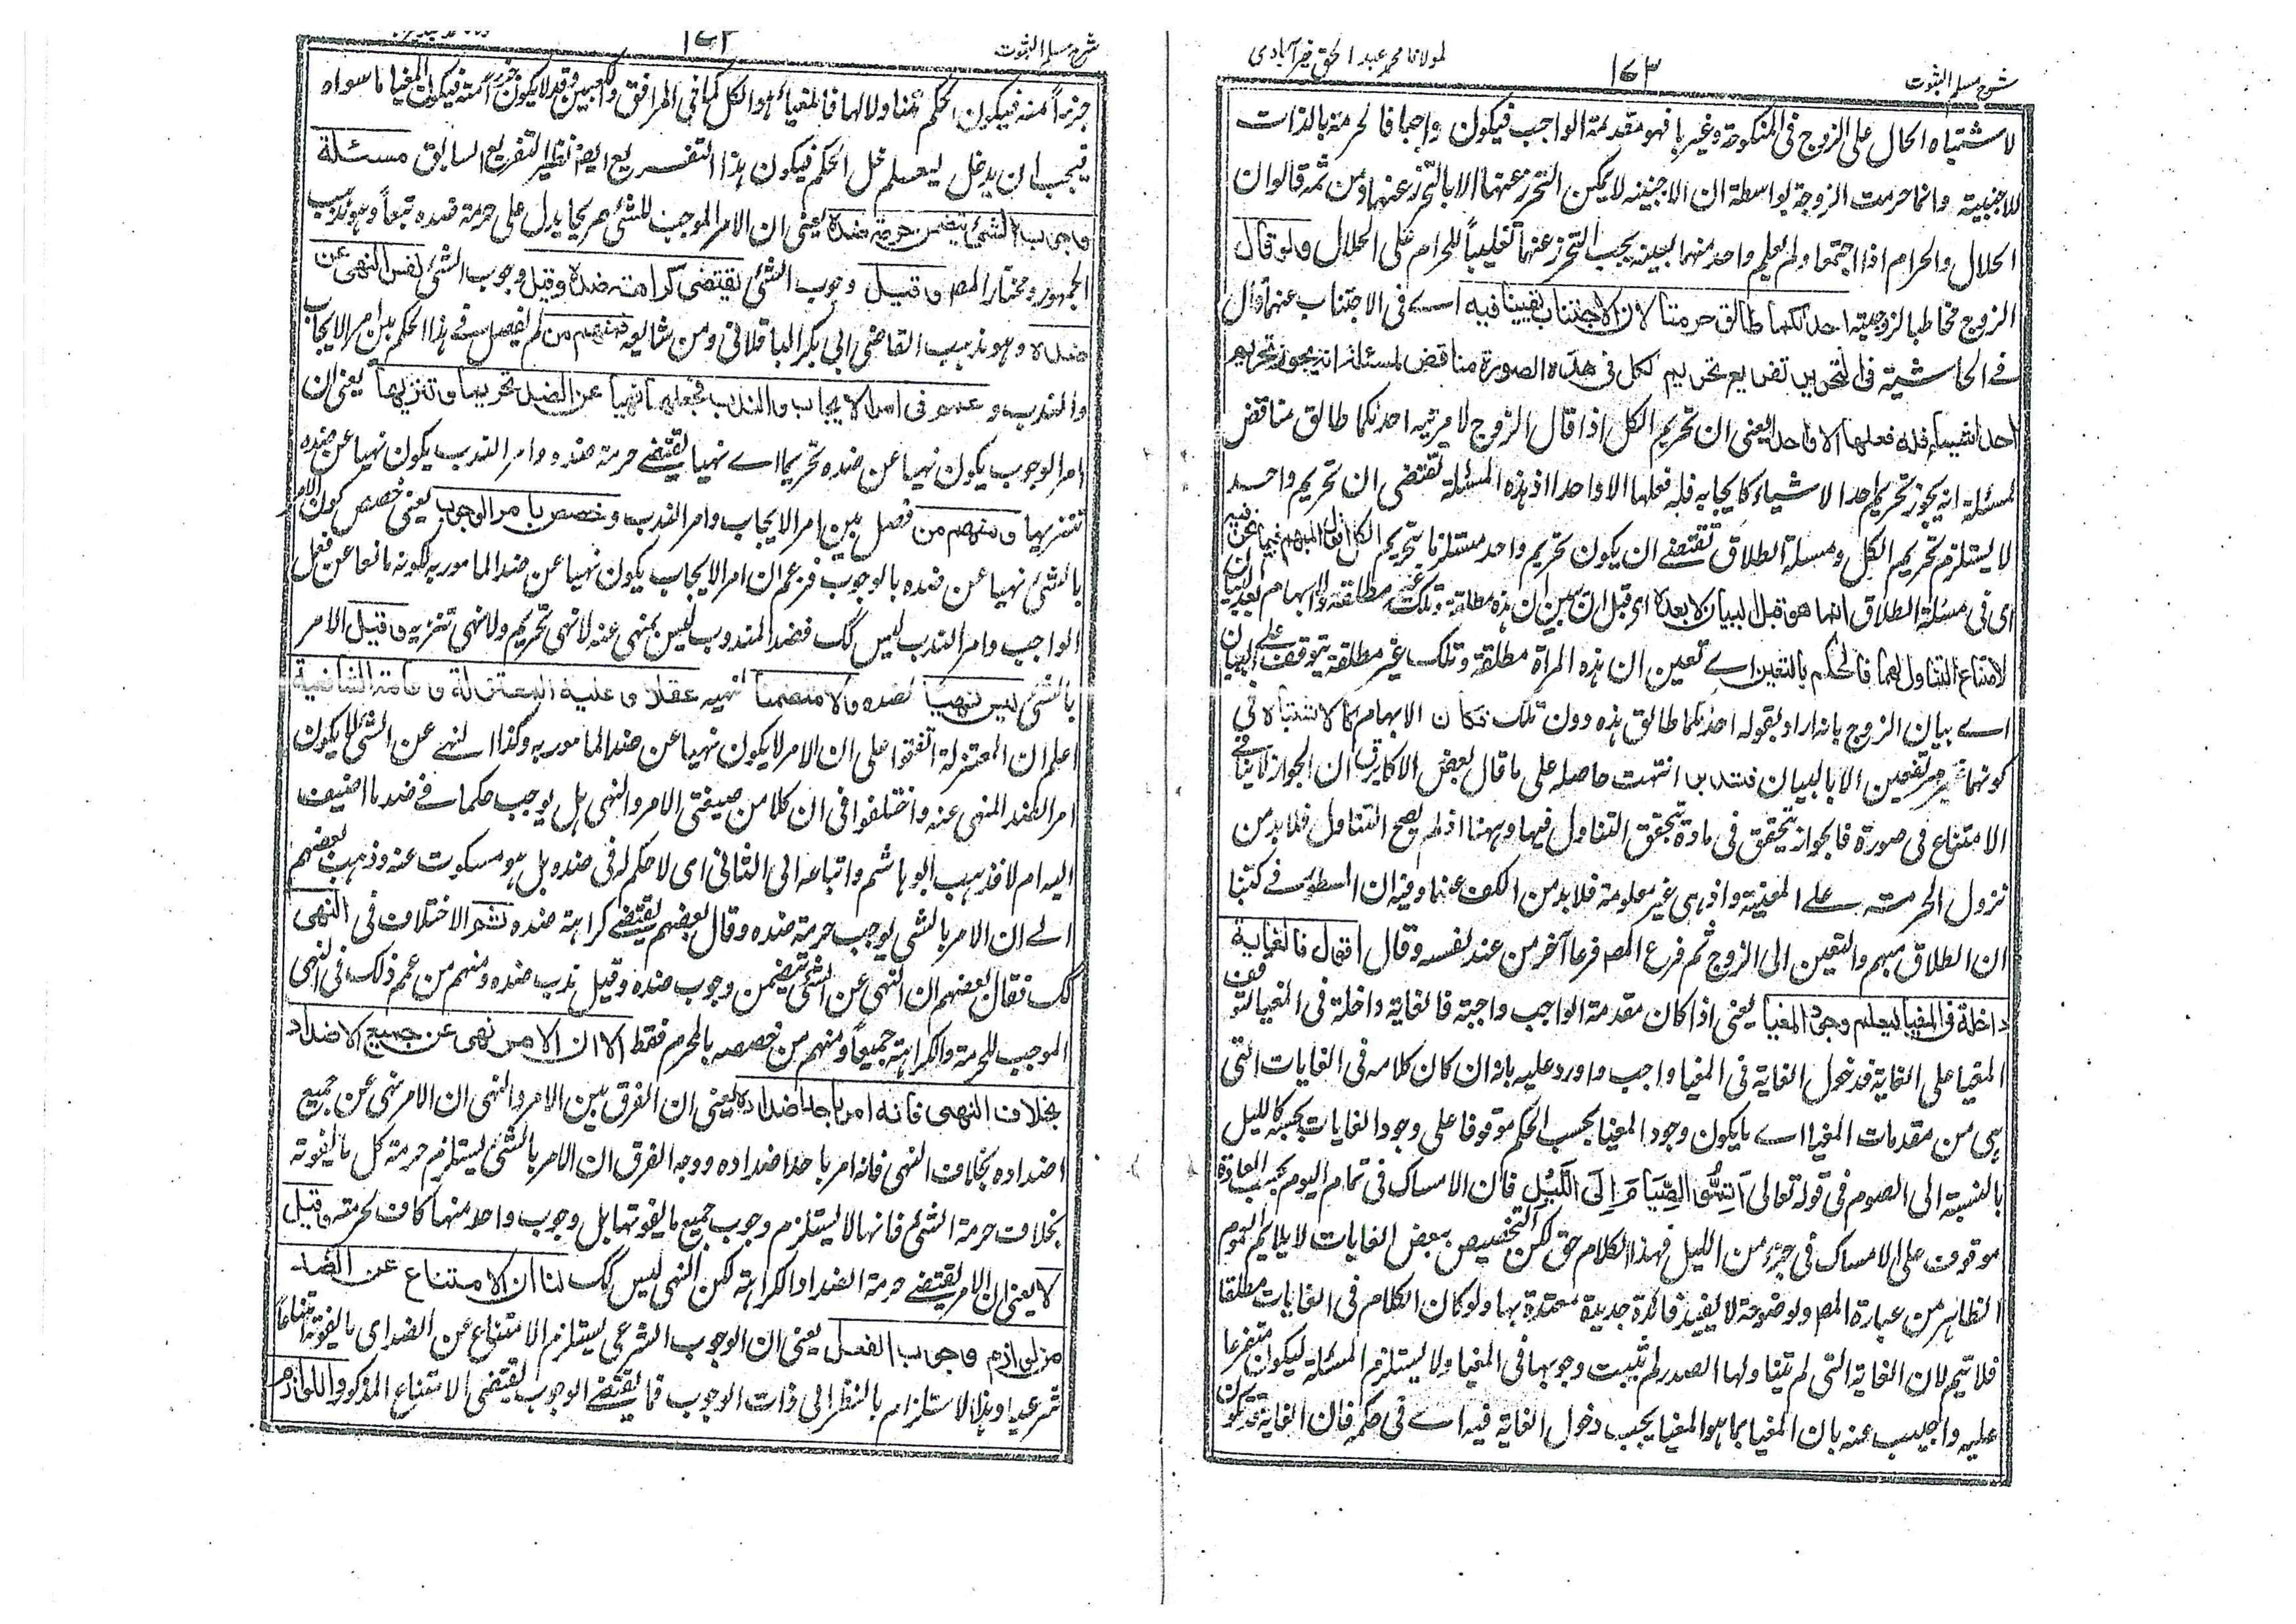 شرح مسلم الثبوت
١٧٣
لمولانا محمد عبد الحق خيرآبادى
لاشتباه الحال على الزوج فى المنكوحة وغيرها فهو مقدمة الواجب فيكون واجبا فالحرمة بالذات
للاجنبية وانما حرمت الزوجة بواسطة ان الاجنبية لا يمكن التحرز عنها الا بالتحرز عنهما ومن ثمه قالوا ان
الحلال والحرام اذا اجتمعا ولم يعلم واحد منهما بعينه يجب التحرز عنهما تغليباً للحرام على الحلال ولو قال
الزوج مخاطبا لزوجتيه احدٰكما طالق حرمتا لان الاجتناب يقينا فيه اے فى الاجتناب عنهما وال
فے الحاشية فى التحرير تفريع تحريم الكل فى هذه الصورة مناقض لمسئلة انه يجوز تحريم
احد اشياء فله فعلها الا واحدا يعنى ان تحريم الكل اذا قال الزوج لامرتيه احدٰكما طالق مناقض
لمسئلة انه يجوز تحريم احد الاشياء كايجابه فله فعلها الا واحدا اذ هذه المسئلة تقتضى ان تحريم واحد
لا يستلزم تحريم الكل ومسلة الطلاق تقتضے ان يكون تحريم واحد مستلزما لتحريم الكل اقول المبهم فيما نحن فيه
اى فى مسئلة الطلاق انما هو قبل البيان لا بعده اى قبل ان يبين ان هذه مطلقة وتلك غير مطلقة والابهام بعد البيان
لامتناع التناول لهما فالحكم بالتعين اے تعين ان هذه المراة مطلقة وتلك غير مطلقة يتوقف على البيان
اے بيان الزوج بانه اراد بقوله احدٰكما طالق هذه دون تلك فكان الابهام كالاشتباه فى
كونهما غير مرتفعين الا بالبيان فتدبر انتهت حاصله على ما قال بعض الاكابر ان الجواز لا ينافے
الامتناع فى صورة فالجواز يتحقق فى مادة تحقق التناول فيها وههنا اذ لم يصح التناول فلا بد من
نزول الحرمة على المعينة واذ هى غير معلومة فلا بد من الكف عنهما وفيه ان المسطور فے كتبنا
ان الطلاق مبهم والتعين الى الزوج ثم فرع المصـ فرعا آخر من عند نفسه وقال اقول فالغاية
داخلة فى المغيا ليعلم وجود المغيا يعنى اذا كان مقدمة الواجب واجبة فالغاية داخلة فى المغيا لتوقف
المغيا على الغاية فدخول الغاية فى المغيا واجب واورد عليه بانه ان كان كلامه فى الغايات التى
هى من مقدمات المغيا اے ما يكون وجود المغيا بحسب الحكم موقوفا على وجود الغايات بحسبه كالليل
بالنسبة الى الصوم فى قوله تعالى اَتِمُّوا الصِّيَامَ اِلَى اللَّيْلِ فان الامساك فى تمام اليوم بحسب العادة
موقوف على الامساك فى جزء من الليل فهذا الكلام حق لكن التخصيص ببعض الغايات لا يلايم العموم
الظاهر من عبارة المصـ ولوضوحه لا يفيد فائدة جديدة معتدة بها ولو كان الكلام فى الغايات مطلقا
فلا يتم لان الغاية التى لم يتناولها الصدر لم يثبت وجوبها فى المغيا ولا يستلزم المسئلة ليكون متفرعا
عليه واجيب عنه بان المغيا بما هو المغيا يجب دخول الغاية فيه اے فى حكمه فان الغاية قد تكون
شرح مسلم الثبوت
جزءاً منه فيكون الحكم متناولا لها فالمغياء هو الكل كما فى المرافق والكعبين وقد لا يكون جزء منه فيكون المغيا ما سواه
فيجب ان يدخل ليعلم غل الحكم فيكون هذا التفريع ايضا نظير التفريع السابق مسئلة
وجوب الشئ يتضمن حرمة ضده يعنى ان الامر الموجب للشئ صريحا يدل على حرمة ضده تبعاً وهو مذهب
الجمهور ومختار المصـ وقيل وجوب الشئ يقتضى كراهته ضده وقيل وجوب الشئ نفس النهى عن
ضده وهو مذهب القاضى ابى بكر الباقلانى ومن شايعه فمنهم من لم يفصل فے هذا الحكم بين امر الايجاب
والندب وعمم فى امر الايجاب والندب فجعلهما نهيا عن الضد تحريما وتنزيها يعنى ان
امر الوجوب يكون نهيا عن ضده تحريما اے نهيا يقتضے حرمة ضده وامر الندب يكون نهيا عن ضده
تنزيها ومنهم من فصل بين امر الايجاب وامر الندب وخصص بامر الوجوب يعنى خصص كون الامر
بالشئ نهيا عن ضده بالوجوب فزعم ان امر الايجاب يكون نهيا عن ضد المامور به لكونه مانعا عن فعل
الواجب وامر الندب ليس كك فضد المندوب ليس بمنهى عنه لا نهى تحريم ولا نهى تنزيه وقيل الامر
بالشئ ليس نهيا لضده ولا متضمنا لنهيه عقلا وعليه المعتزلة وعامة الشافعية
اعلم ان المعتزلة اتفقوا على ان الامر لا يكون نهيا عن ضد المامور به وكذا النهے عن الشئ لا يكون
امر الضد المنهى عنه واختلفوا فى ان كلا من صيغتى الامر والنهى هل يوجب حكما فے ضد ما اضيف
اليه ام لا فذهب ابو هاشم واتباعه الى الثانى اى لا حكم له فى ضده بل هو مسكوت عنه وذهب بعضهم
الے ان الامر بالشى يوجب حرمة ضده وقال بعضهم يقتضے كراهة ضده ثم الاختلاف فى النهى
كك فقال بعضهم ان النهى عن الشئ يتضمن وجوب ضده وقيل ندب ضده ومنهم من عمم ذلك فى النهى
الموجب للحرمة والكراهة جميعاً ومنهم من خصصه بالمحرم فقط الا ان الامر نهى عن جميع الاضداد
بخلاف النهى فانه امر باحد اضداده يعنى ان الفرق بين الامر والنهى ان الامر نهى عن جميع
اضداده بخلاف النهى فانه امر باحد اضداده ووجه الفرق ان الامر بالشئ يستلزم حرمة كل ما يفوته
بخلاف حرمة الشئ فانها لا يستلزم وجوب جميع ما يفوتها بل وجوب واحد منها كاف لحرمته وقيل
لا يعنى ان الامر يقتضے حرمة الضد او الكراهة لكن النهى ليس كك لنا ان الامتناع عن الضد
من لوازم وجوب الفعل يعنى ان الوجوب الشرعى يستلزم الامتناع عن الضد اى ما يفوته امتناعاً
شرعيا وهذا الاستلزام بالنظر الى ذات الوجوب فما يقتضے الوجوب يقتضى الامتناع المذكور واللوازم